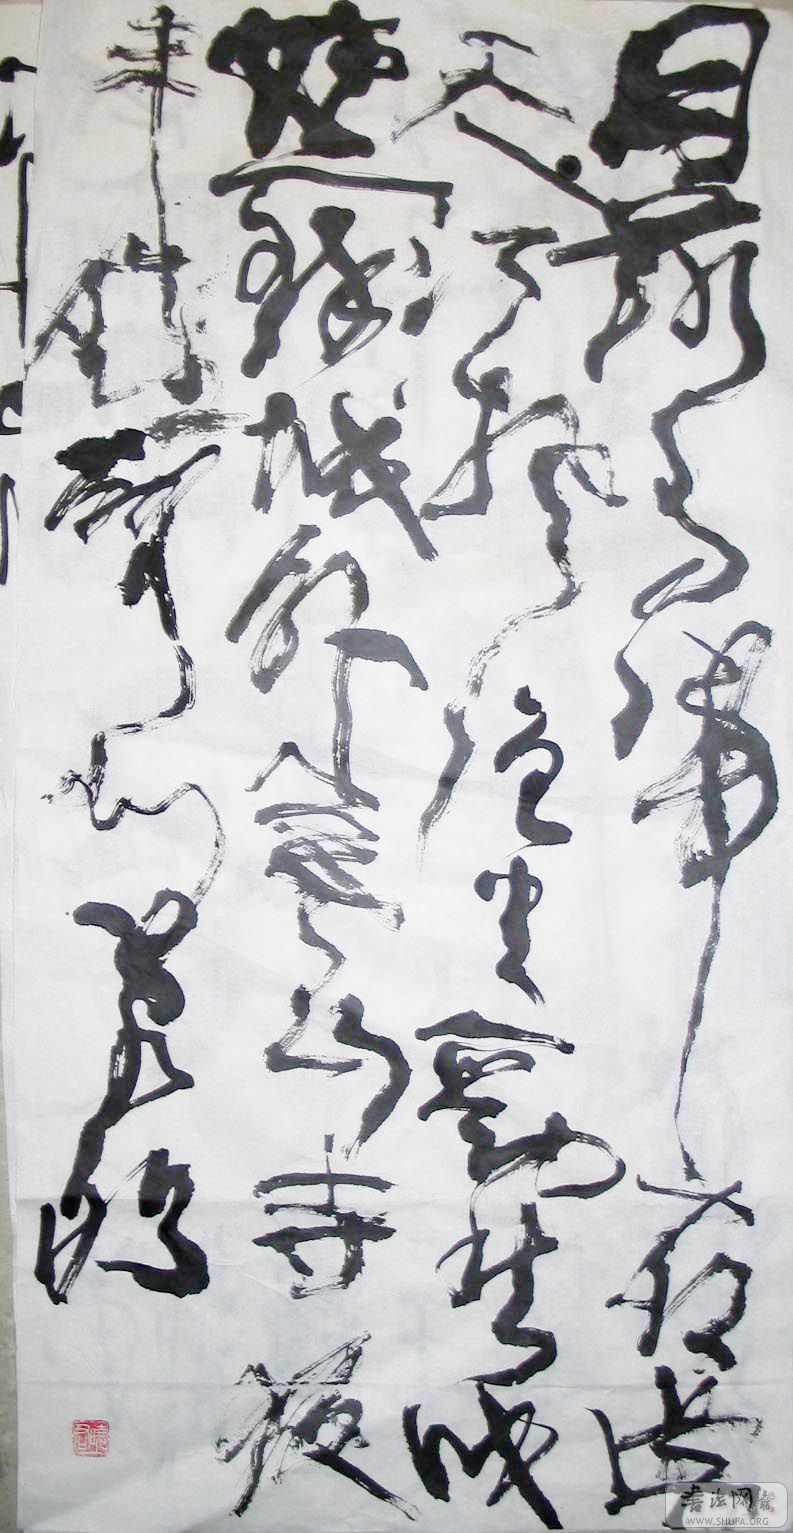 月落烏啼霜滿
天江楓漁火對愁眠
姑蘇城外寒山寺夜
半鐘聲到客船
书法网
WWW.SHUFA.ORG